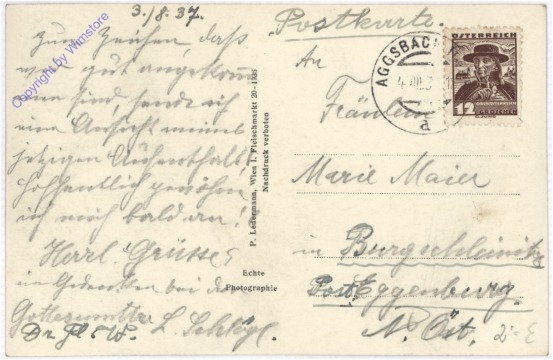 3./8.37.
Zum Zeichen, daß
wir gut angekom
men sind, sende ich
eine Ansicht meines
jetzigen Aufenthalts
hoffentlich gewöhne
ich mich bald an!
Herzl. Grüsse
in Gedenken bei der
Gottesmutter
Copyright by Wimstore
P. Ledermann, Wien I. Fleischmarkt 20-1931
Nachdruck verboten
Echte
Photographie
Postkarte.
An
Fräulein
Marie Maier
in Burgschleinitz
Post Eggenburg
N. Öst.
ÖSTERREICH
OBERÖSTERREICH
12 GROSCHEN
AGGSBACH
a